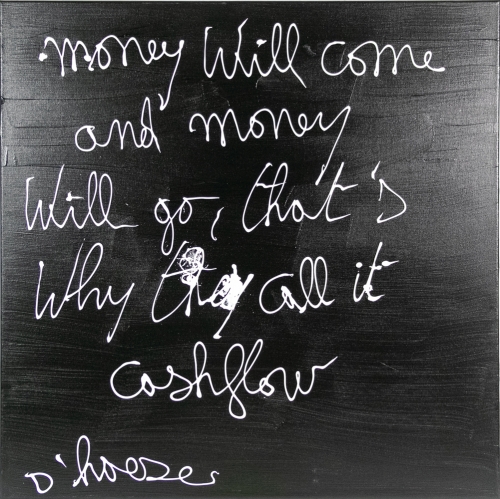 money Will come
and money
Will go, that's
Why they call it
cashflow
D'hoese